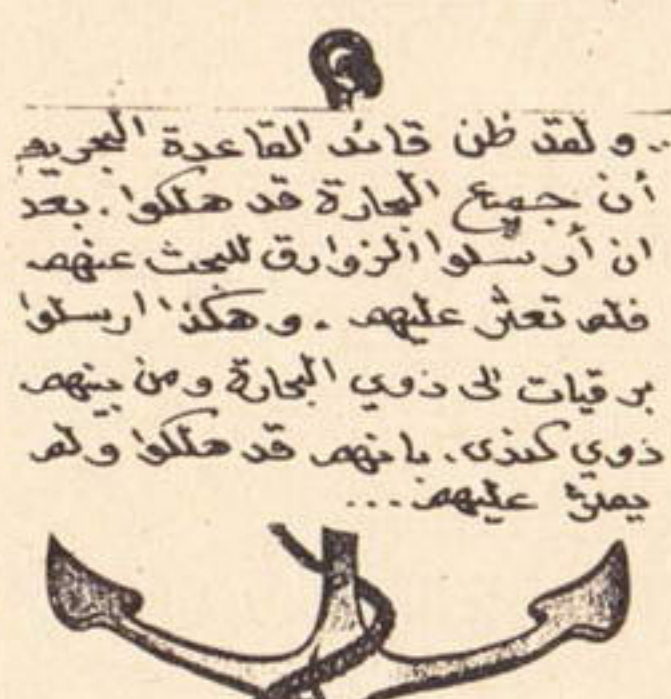 .. و لقد ظن قائد القاعدة البحرية
أن جميع البحارة قد هلكوا . بعد
ان أرسلوا الزوارق للبحث عنهم
فلم تعثر عليهم . و هكذا ارسلوا
برقيات الى ذوي البحارة ومن بينهم
ذوي كندى . بانهم قد هلكوا ولم
يعثر عليهم ...